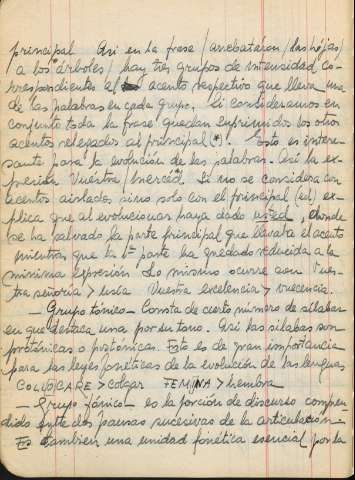 principal Asi en la frase / arrebatáron / las hójas /
a los árboles / hay tres grupos de intensidad co-
rrespondientes al acento respectivo que lleva una
de las palabras en cada grupo. Si consideramos en
conjunto toda la frase quedan suprimidos los otros
acentos relegados al principal (*). Esto es intere-
sante para la evolucion de las palabras. Asi la ex-
presión Vuestra / merced. Si no se considera con
acentos aislados sino solo con el principal (ed) ex-
plica que al evolucionar haya dado usted, donde
se ha salvado la parte principal que llevaba el acento
mientras que la 1ª parte ha quedado reducida a la
minima expresión. Lo mismo ocurre con Vues-
tra señoria > usia Vuestra excelencia > vuecencia.
— Grupo tónico — Consta de cierto número de silabas
en que destaca una por su tono. Asi las silabas son
protónicas o postónicas. Este es de gran importancia
para las leyes fonéticas de la evolución de las lenguas
COLLOCARE > colgar FEMINA > hembra
Grupo fónico es la porción de discurso compren-
dido entre dos pausas sucesivas de la articulación —
Es tambien una unidad fonética esencial por la